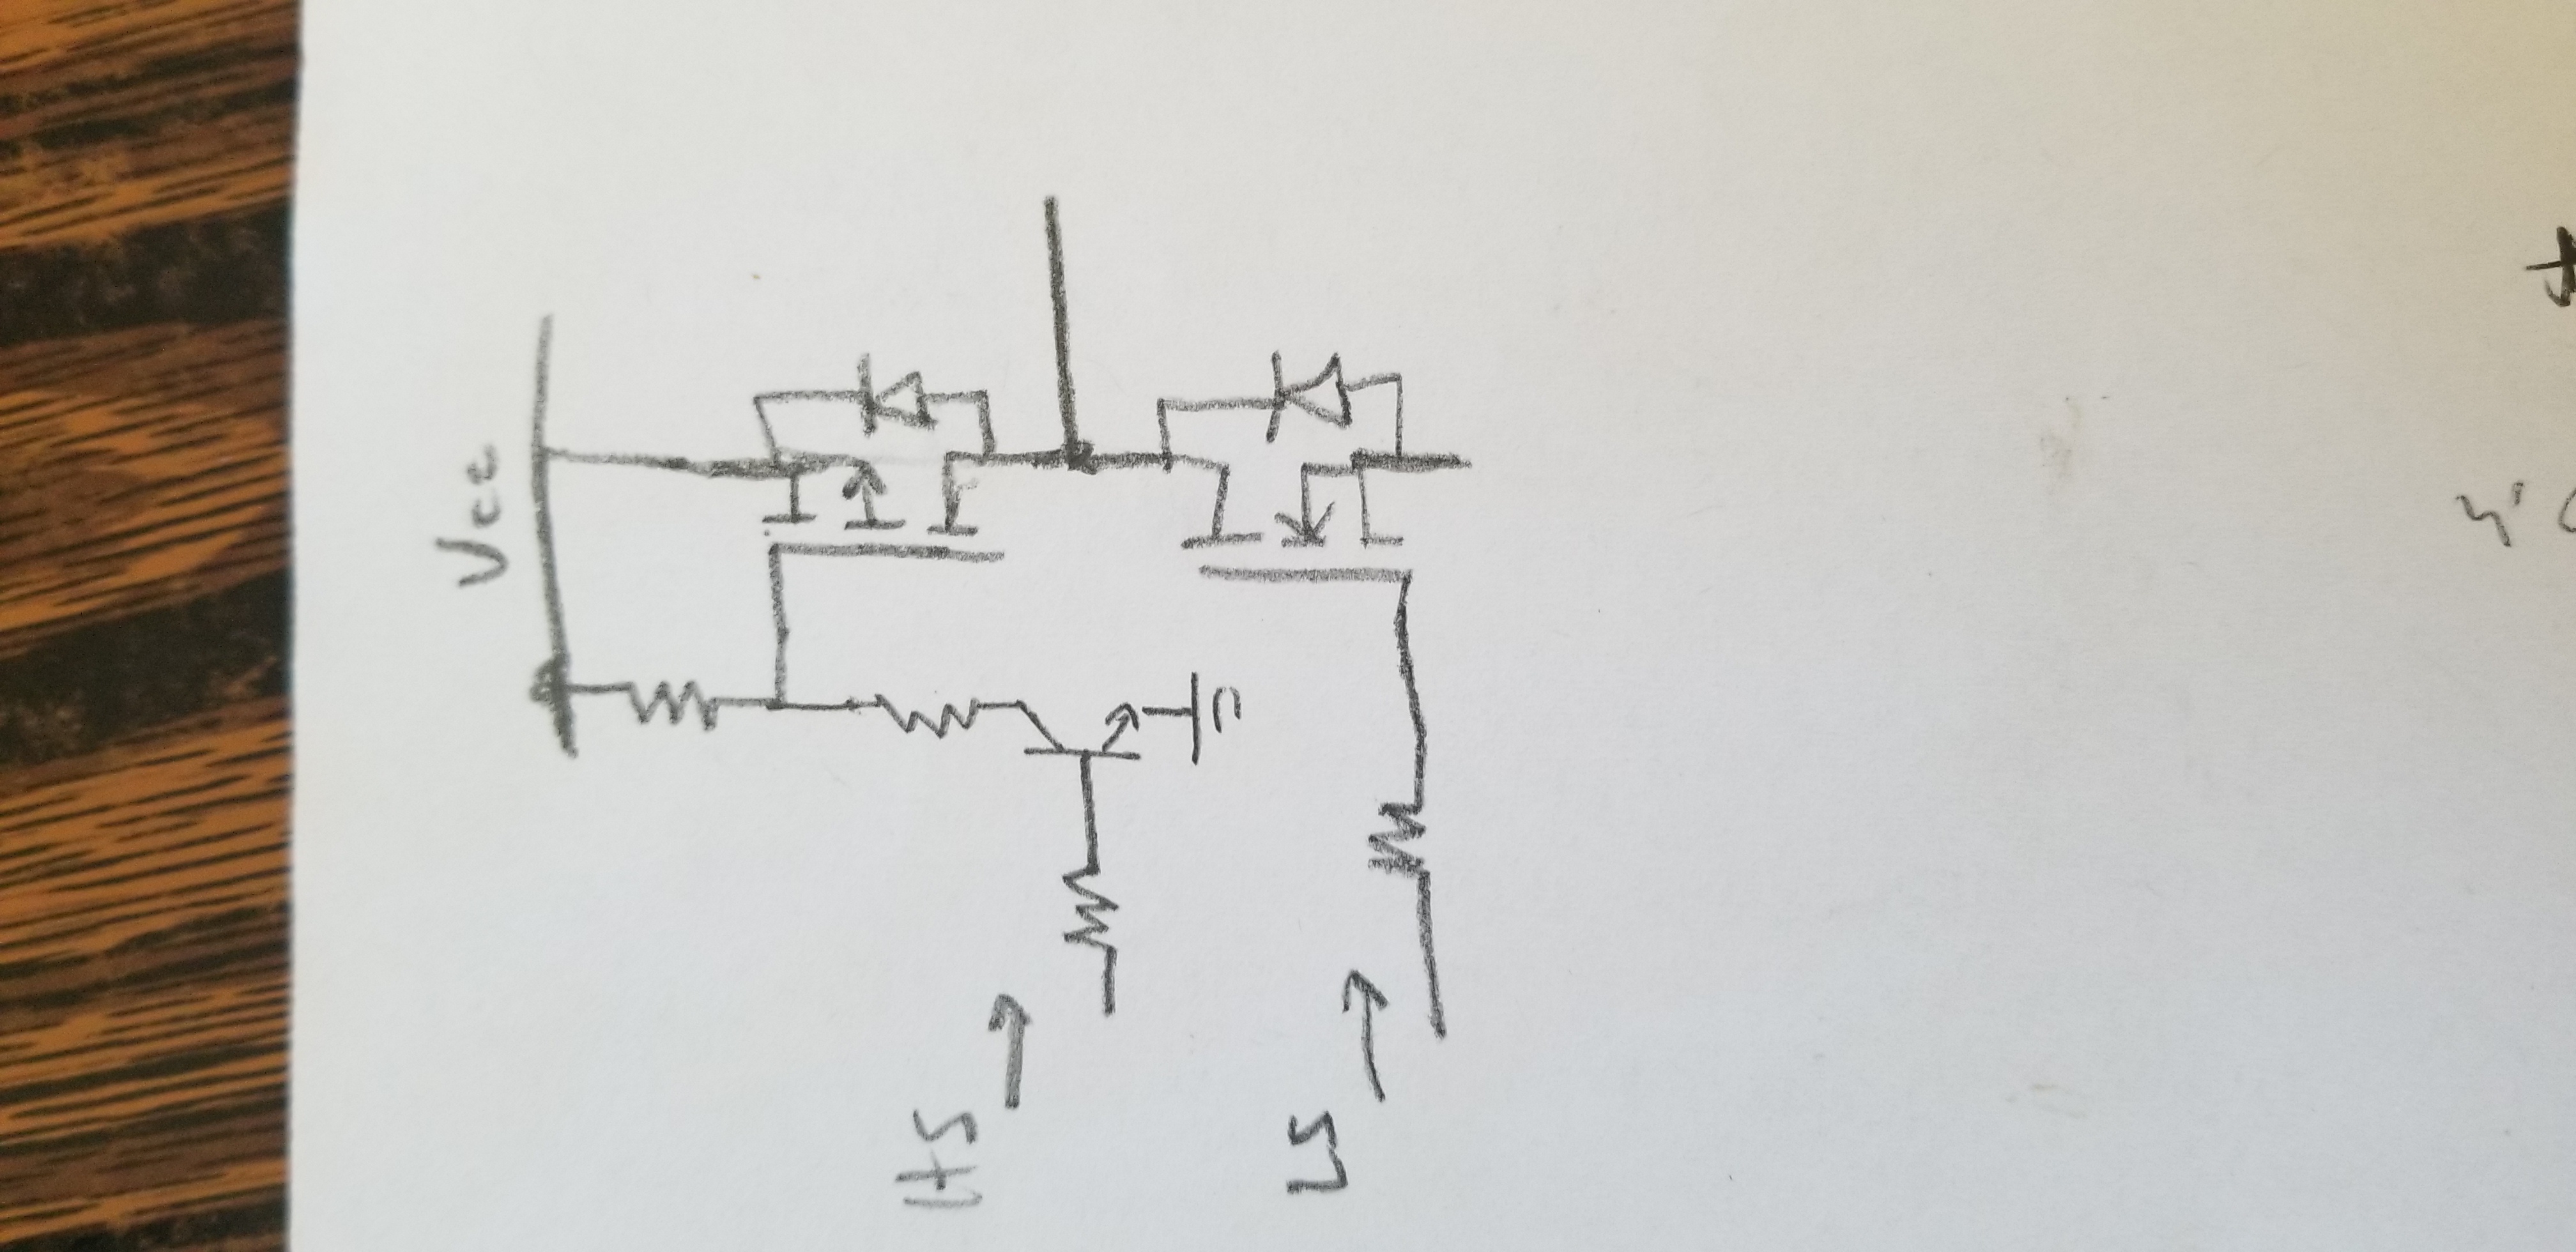 Vcc
HS
LS